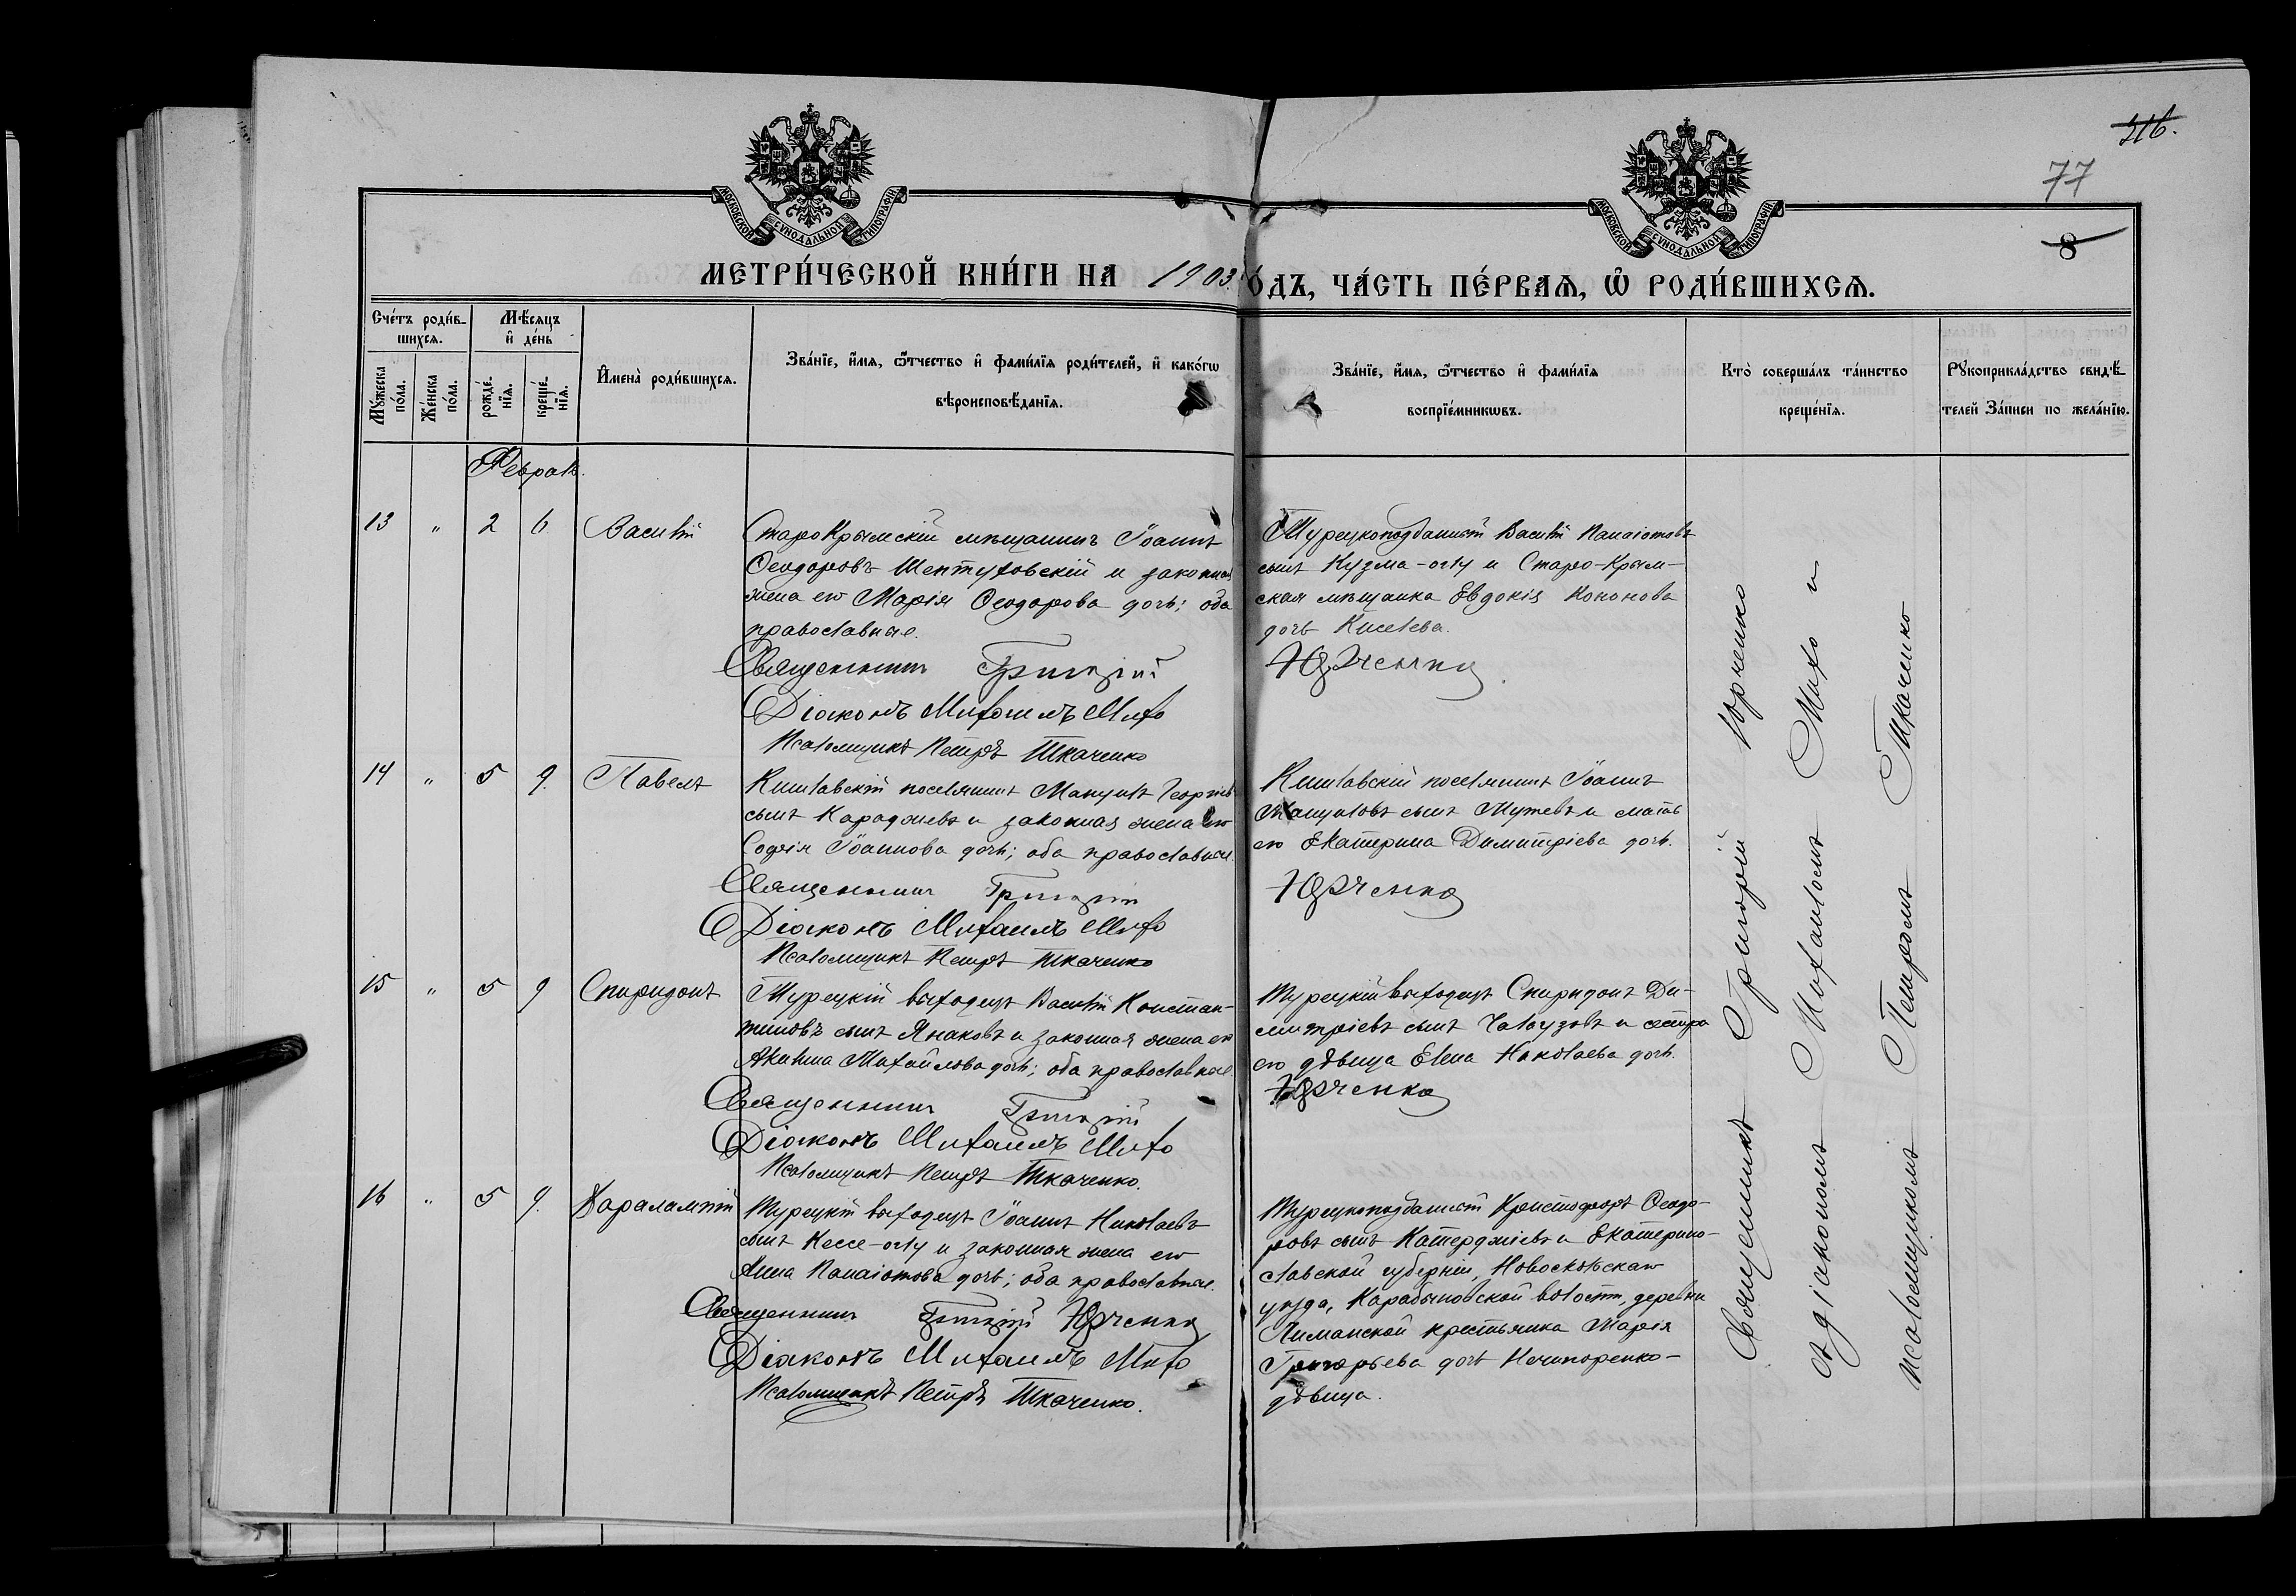 316.
77
8
МОСКОВСКОЙ СУНОДАЛЬНОЙ ТИПОГРАФІИ
МОСКОВСКОЙ СУНОДАЛЬНОЙ ТИПОГРАФІИ
МЕТРИ́ЧЕСКОЙ КНИ́ГИ НА 1903 ГОДЪ, ЧА́СТЬ ПЕ́РВАѦ, Ѡ РОДИ́ВШИХСѦ.
Сче́тъ роди́в-
шихсѧ.
Мꙋ́жеска
по́ла.
Же́нска
по́ла.
Мѣ́сѧцъ
и҆ де́нь
рожде́-
нїѧ.
креще́-
нїѧ.
И҆мена̀ роди́вшихсѧ.
Зва́нїе, и҆́мѧ, ѻ҆́тчество и҆ фами́лїѧ роди́телей, и҆ како́гѡ
вѣроисповѣ́данїѧ.
Зва́нїе, и҆́мѧ, ѻ҆́тчество и҆ фами́лїѧ
воспрїе́мникѡвъ.
Кто̀ соверша́лъ та́инство
креще́нїѧ.
Рꙋкоприкла́дство свидѣ́-
телей За́писи по жела́нїю.
Феврал.
13 " 2 6 Василій
СтароКрымскій мѣщанинъ Іоаннъ
Ѳеодоровъ Шептуховскій и законная
жена его Марія Ѳеодорова дочь; оба
православные.
Священникъ Григорій Юрченко
Діаконъ Михаилъ Михо
Псаломщикъ Петръ Ткаченко
Турецкоподданный Василій Панаіотовъ
сынъ Кузма-оглу и Старо-Крым-
ская мѣщанка Евдокія Кононова
дочь Киселева.
14 " 5 9. Павелъ
Кишлавскій поселянинъ Мануилъ Георгіевъ
сынъ Караджевъ и законная жена его
Софія Іоаннова дочь; оба православные.
Священникъ Григорій Юрченко
Діаконъ Михаилъ Михо
Псаломщикъ Петръ Ткаченко
Кишлавскій поселянинъ Іоаннъ
Мануиловъ сынъ Мутевъ и мать
его Екатерина Димитріева дочь.
15 " 5 9 Спиридонъ
Турецкій выходецъ Василій Констан-
тиновъ сынъ Янаковъ и законная жена его
Акилина Михайлова дочь; оба православные
Священникъ Григорій Юрченко
Діаконъ Михаилъ Михо
Псаломщикъ Петръ Ткаченко.
Турецкій выходецъ Спиридонъ Ди-
митріевъ сынъ Чалоузовъ и сестра
его дѣвица Елена Николаева дочь.
16 " 5 9. Харалампій
Турецкій выходецъ Іоаннъ Николаевъ
сынъ Кессе-оглу и законная жена его
Анна Панаіотова дочь; оба православные.
Священникъ Григорій Юрченко
Діаконъ Михаилъ Михо
Псаломщикъ Петръ Ткаченко.
Турецкоподданный Христофоръ Ѳеодо-
ровъ сынъ Катерджіевъ и Екатерино-
славской губерніи, Новомосковскаго
уѣзда, волости, деревни
Лиманской крестьянка Марія
Григорьева дочь Нечипоренко-
дѣвица.
Священникъ Григорій Юрченко
съ діакономъ Михаиломъ Михо и
псаломщикомъ Петромъ Ткаченко